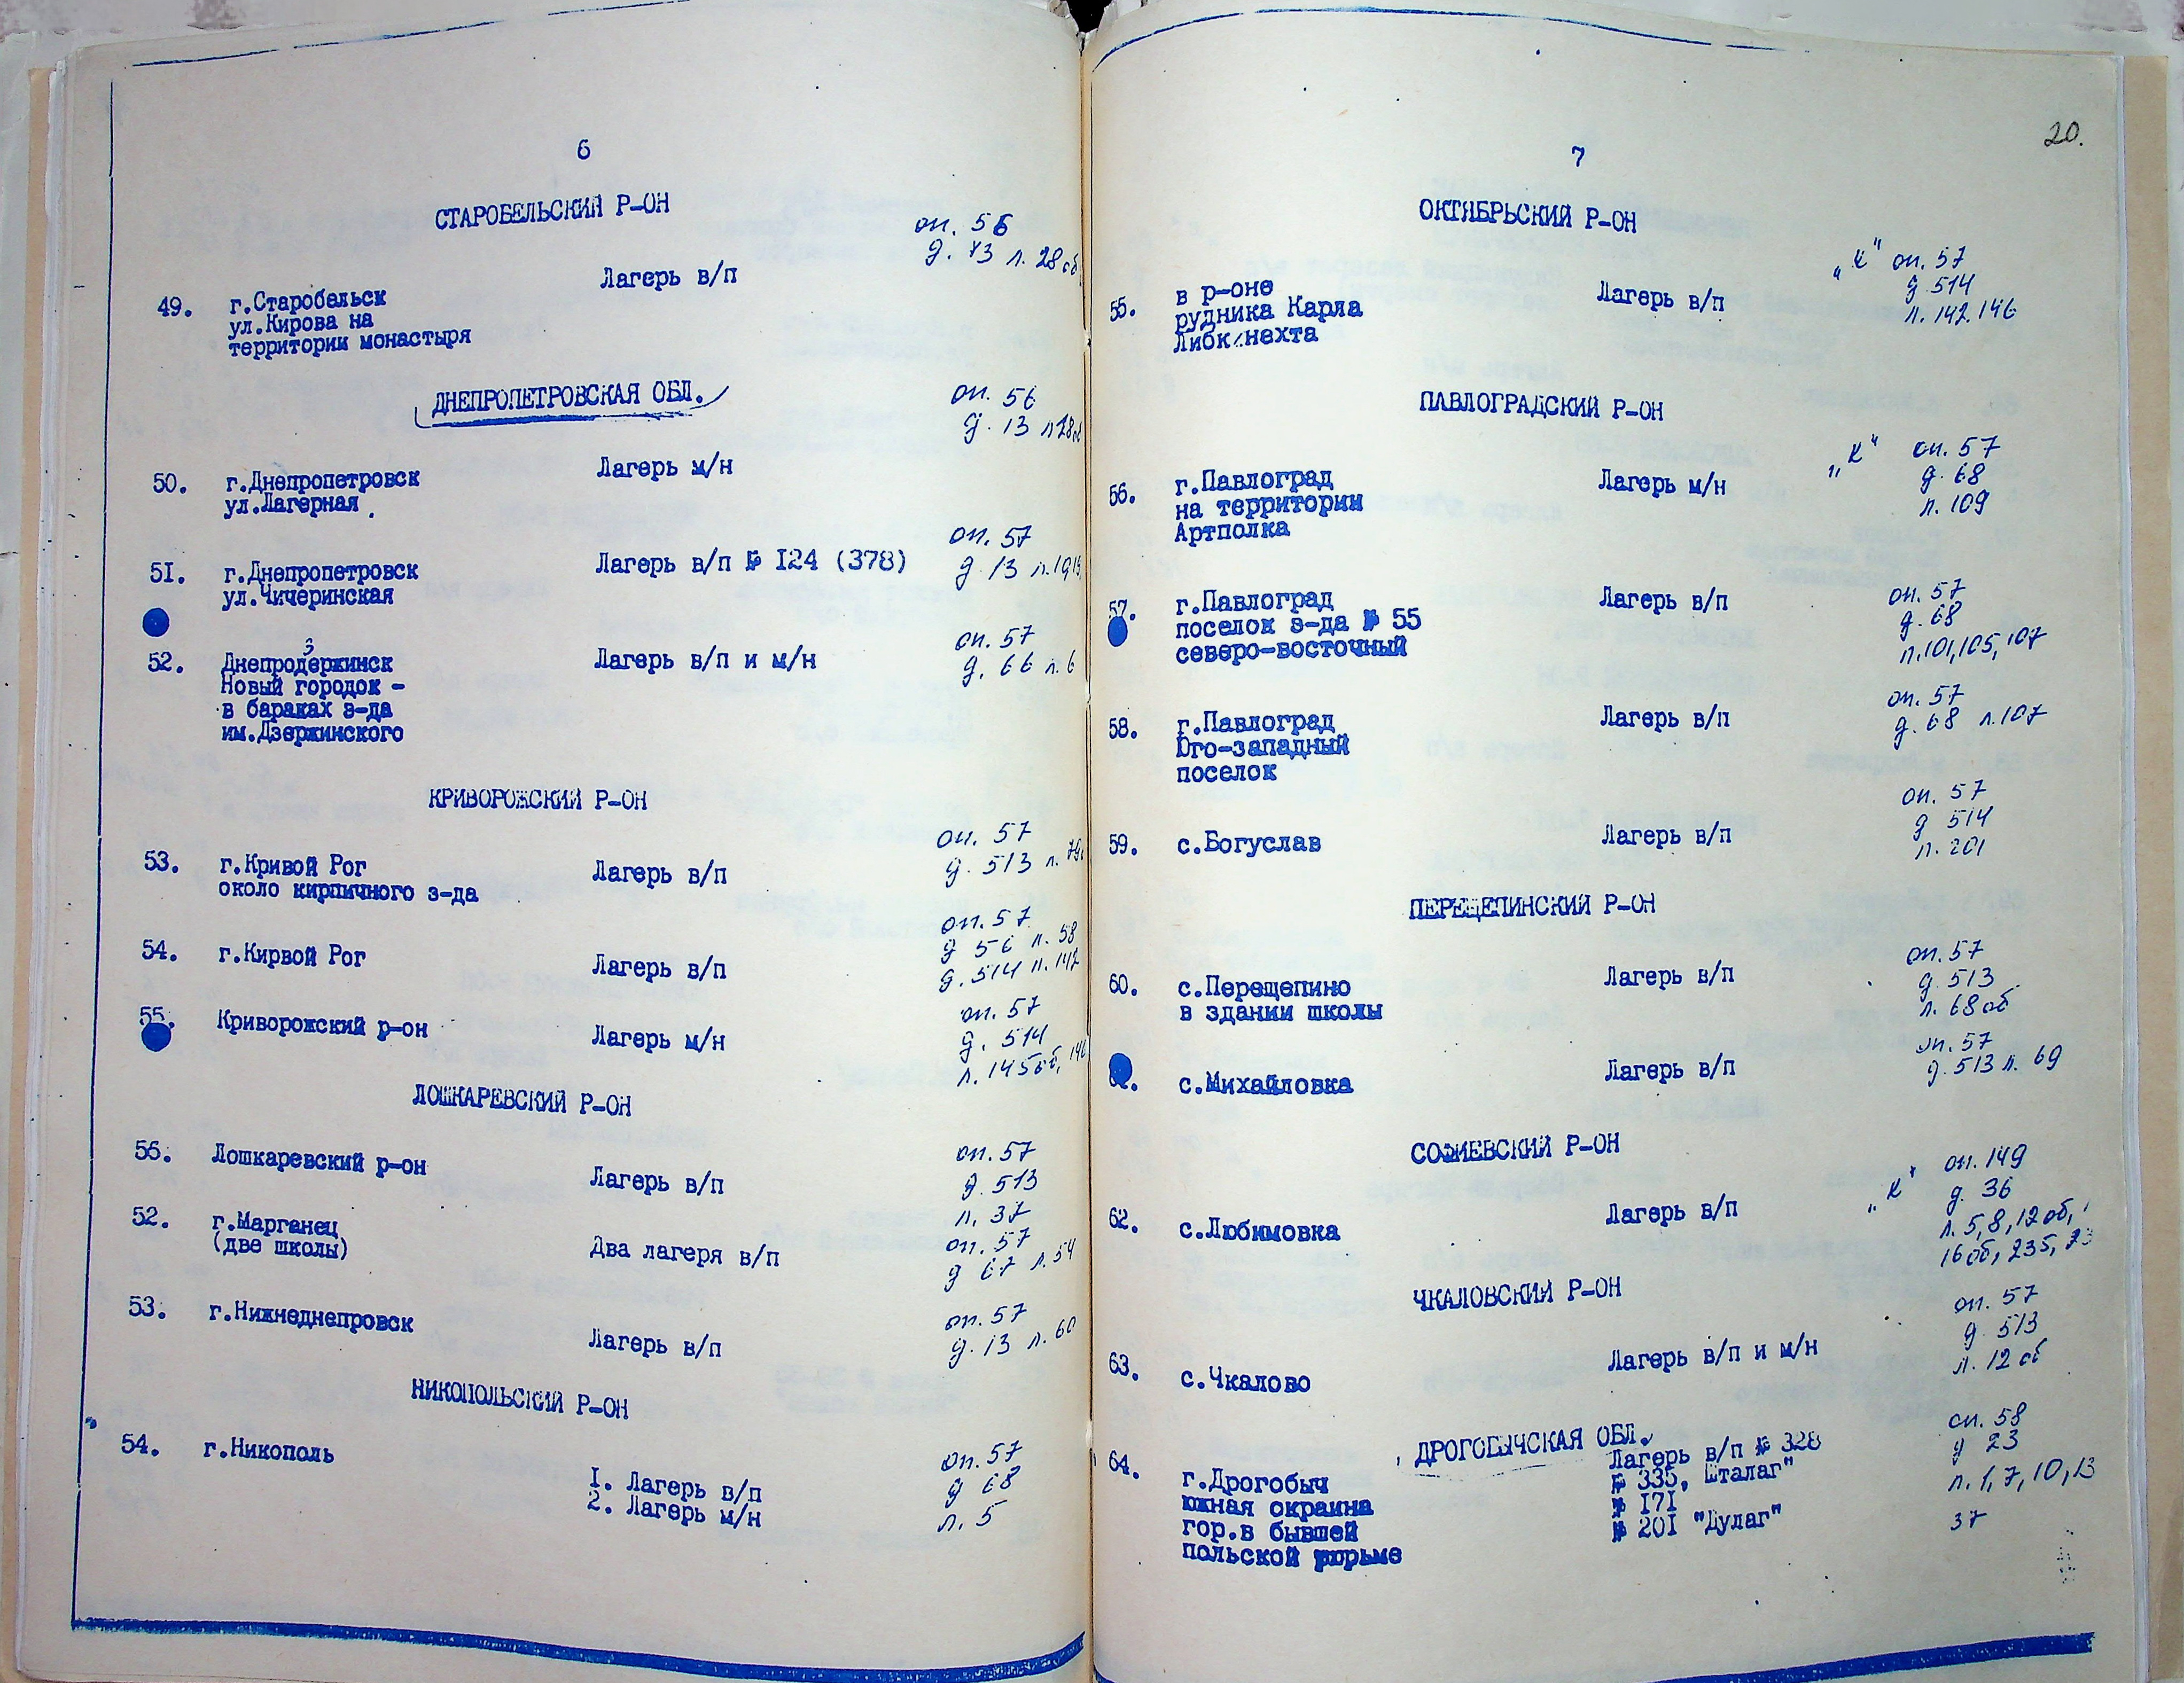 6
СТАРОБЕЛЬСКИЙ Р-ОН
оп. 56
д. 13 л. 28 об
49. г.Старобельск Лагерь в/п
ул.Кирова на
территории монастыря
ДНЕПРОПЕТРОВСКАЯ ОБЛ.
оп. 56
д. 13 л 28об
50. г.Днепропетровск Лагерь м/н
ул.Лагерная
оп. 57
51. г.Днепропетровск Лагерь в/п № I24 (378) д. 13
ул.Чичеринская
оп. 57
52. Днепродзержинск Лагерь в/п и м/н д. 66 л. 6
Новый городок -
в бараках з-да
им.Дзержинского
КРИВОРОЖСКИЙ Р-ОН
оп. 57
53. г.Кривой Рог Лагерь в/п д. 513 л.
около кирпичного з-да
оп. 57
д 56 л. 58
54. г.Кирвой Рог Лагерь в/п д. 514 л. 142
55. Криворожский р-он Лагерь м/н оп. 57
д. 514
л. 145об, 146
ЛОШКАРЕВСКИЙ Р-ОН
56. Лошкаревский р-он Лагерь в/п оп. 57
д. 513
л. 37
52. г.Марганец Два лагеря в/п оп. 57
(две школы) д 67 л. 54
53. г.Нижнеднепровск Лагерь в/п оп. 57
д. 13 л. 60
НИКОПОЛЬСКИЙ Р-ОН
54. г.Никополь
I. Лагерь в/п оп. 57
2. Лагерь м/н д 68
л. 5
20.
7
ОКТЯБРЬСКИЙ Р-ОН
55. в р-оне Лагерь в/п „К" оп. 57
рудника Карла д 514
Либкнехта л. 142. 146
ПАВЛОГРАДСКИЙ Р-ОН
56. г.Павлоград Лагерь м/н „К" оп. 57
на территории д. 68
Артполка л. 109
57. г.Павлоград Лагерь в/п оп. 57
поселок з-да № 55 д. 68
северо-восточный л.101,105,107
58. г.Павлоград Лагерь в/п оп. 57
Юго-западный д. 68 л.107
поселок
59. с.Богуслав Лагерь в/п оп. 57
д 514
л. 201
ПЕРЕЩЕПИНСКИЙ Р-ОН
60. с.Перещепино Лагерь в/п оп. 57
в здании школы д. 513
л. 68 об
с.Михайловка Лагерь в/п оп. 57
д. 513 л. 69
СОФИЕВСКИЙ Р-ОН
62. с.Любимовка Лагерь в/п „К" оп. 149
д. 36
л. 5,8,12 об,
16 об, 235,
ЧКАЛОВСКИЙ Р-ОН
63. с.Чкалово Лагерь в/п и м/н оп. 57
д. 513
л. 12 об
ДРОГОБЫЧСКАЯ ОБЛ.
64. г.Дрогобыч Лагерь в/п № 328 оп. 58
южная окраина № 335, Шталаг" д 23
гор.в бывшей № I7I л. 1, 7, 10, 13
польской тюрьме № 20I "Дулаг" 37